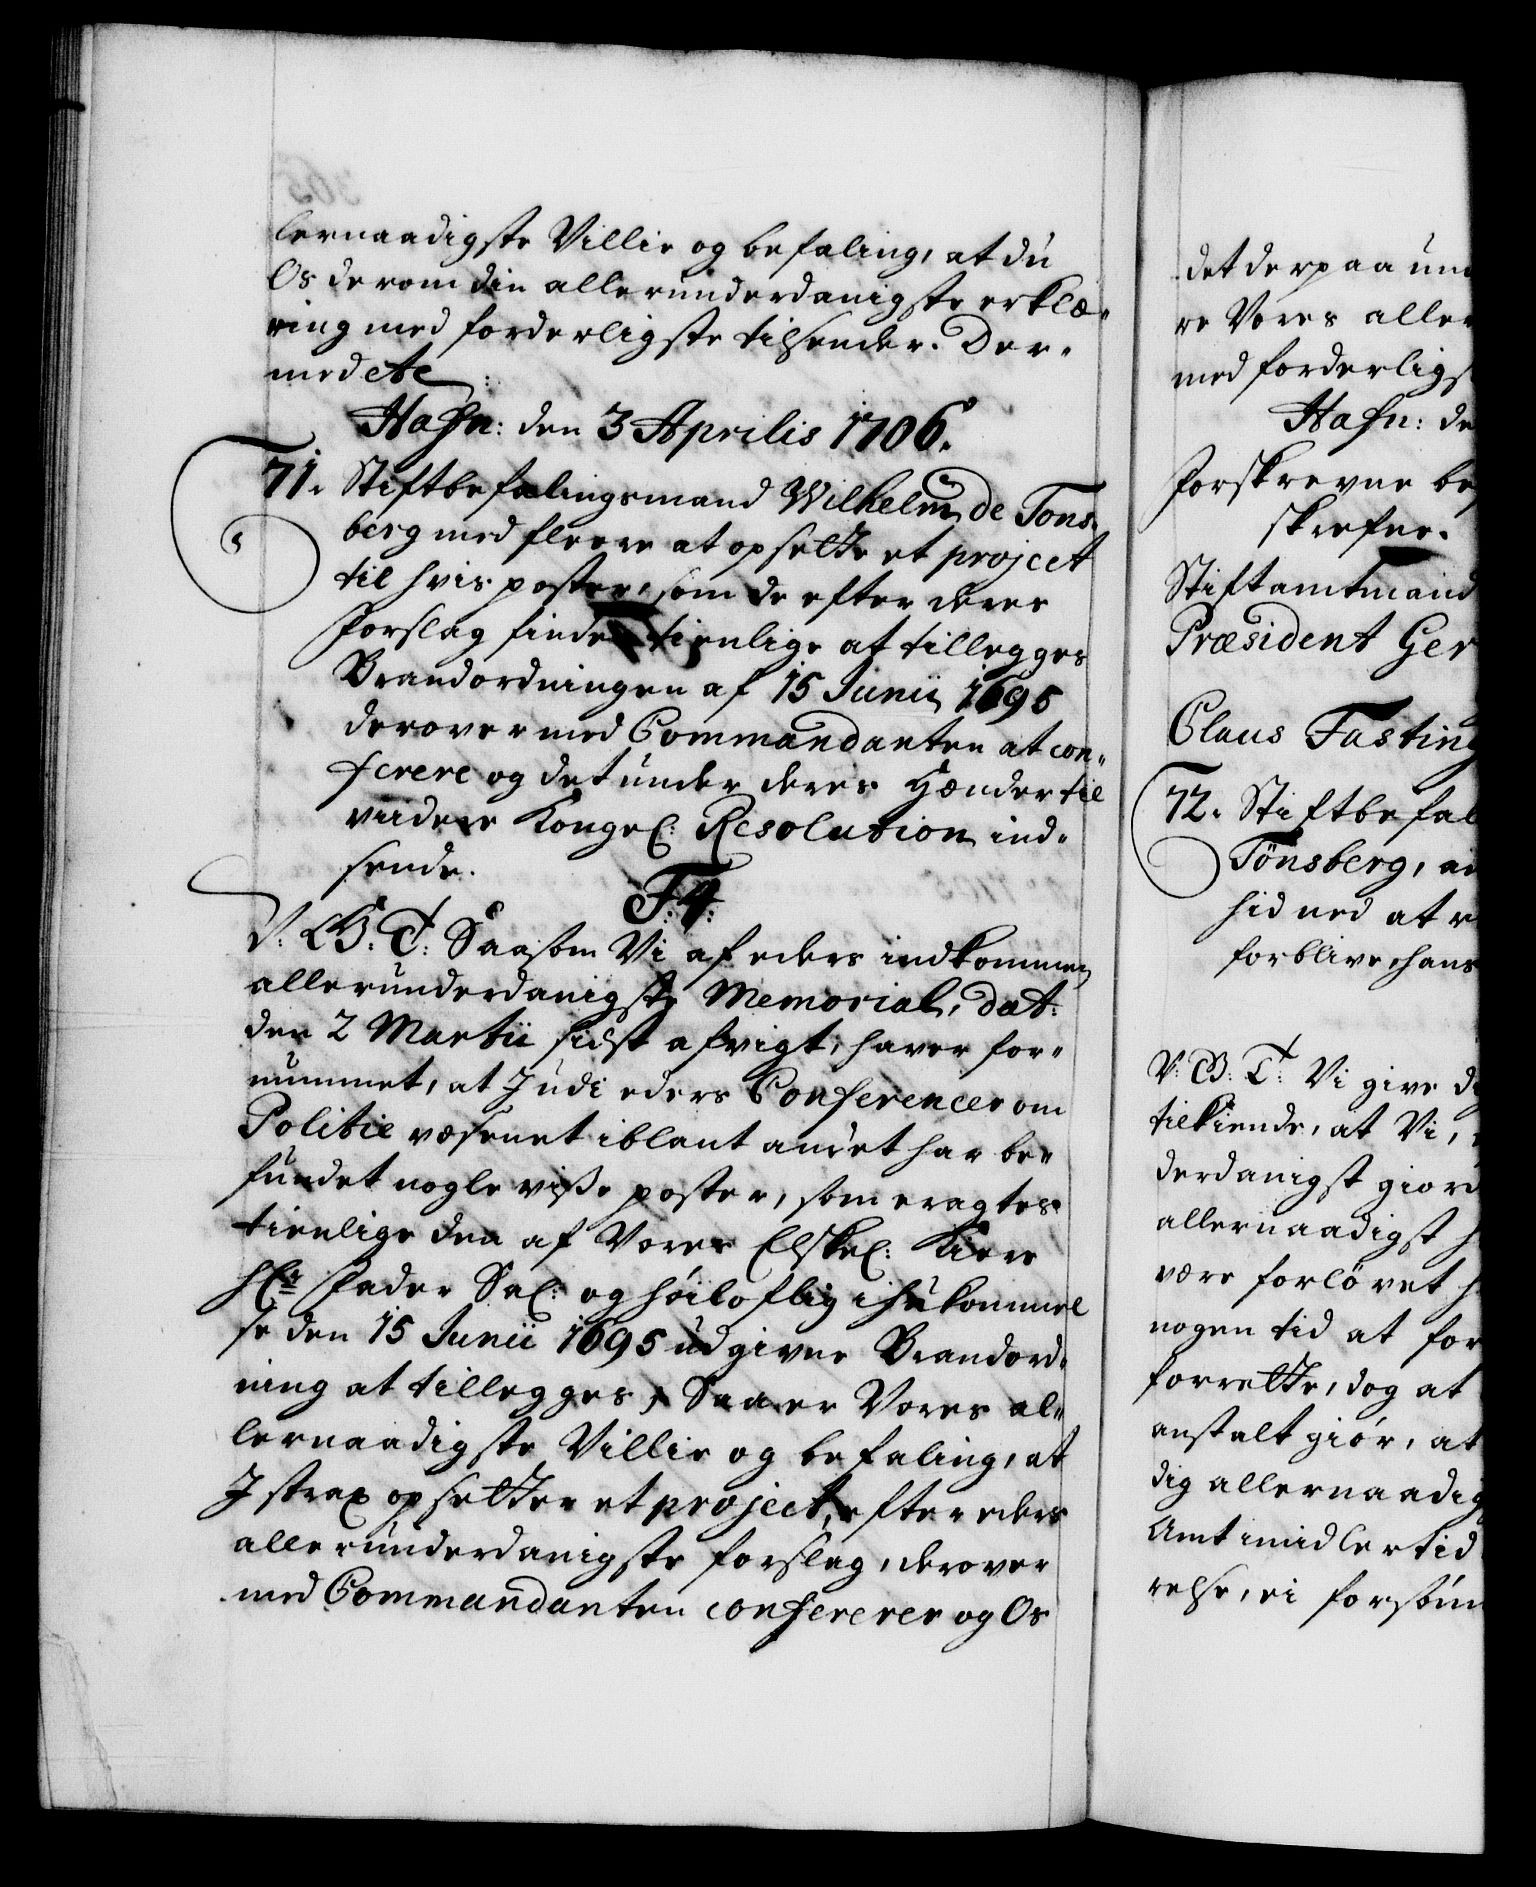 lernaadigste Villie og befaling, at du
Os derom din allerunderdanigste erklæ-
ring med forderligste tilsender. Der-
med etc:
Hafn: den 3 Aprilis 1706.
71. Stiftbefalingsmand Wilhelm de Tons-
berg med fleere at opsette et project
til hvis poster, som de efter deres
forslag finder tienlige at tillegges
Brandordningen af 15 Junii 1695
derover med Commandanten at con-
ferere og det under deres Hænder til
viidere Kongel: Resolution ind-
sende.
F: 4:
V: G: T: Saasom Vi af eders indkommen
allerunderdanigste Memorial, dat:
den 2 Martii sidst afvigt, haver for-
nummet, at I udi eders Conferencer om
Politie væsenet iblant andet har be-
fundet nogle visse poster, som eragtes
tienlige den af Vores Elskel: Kiere
Hr Fader Sal: og høiloflig ihukommel
se den 15 Junii 1695 udgivne Brandord-
ning at tillegges, Saa er Vores al-
lernaadigste Villie og befaling, at
I strax opsetter et project, efter eders
allerunderdanigste forslag, derover
med Commandanten confererer og Os
det derpaa un
re Vores aller
med forderligs
Hafn: de
forskrevne be
skrefne.
Stiftamtmand
Præsident Ger
Claus Fasting
72. Stiftbefal
Tönsberg, an
hid ned at r
forblive, hans
V: G: T: Vi give d
tilkiende, at Vi,
derdanigst giord
allernaadigst h
være forlovet h
nogen tid at for
forrette, dog at
anstalt giør, at
dig allernaadig
Amt imidlertid
relse, ei forsøm